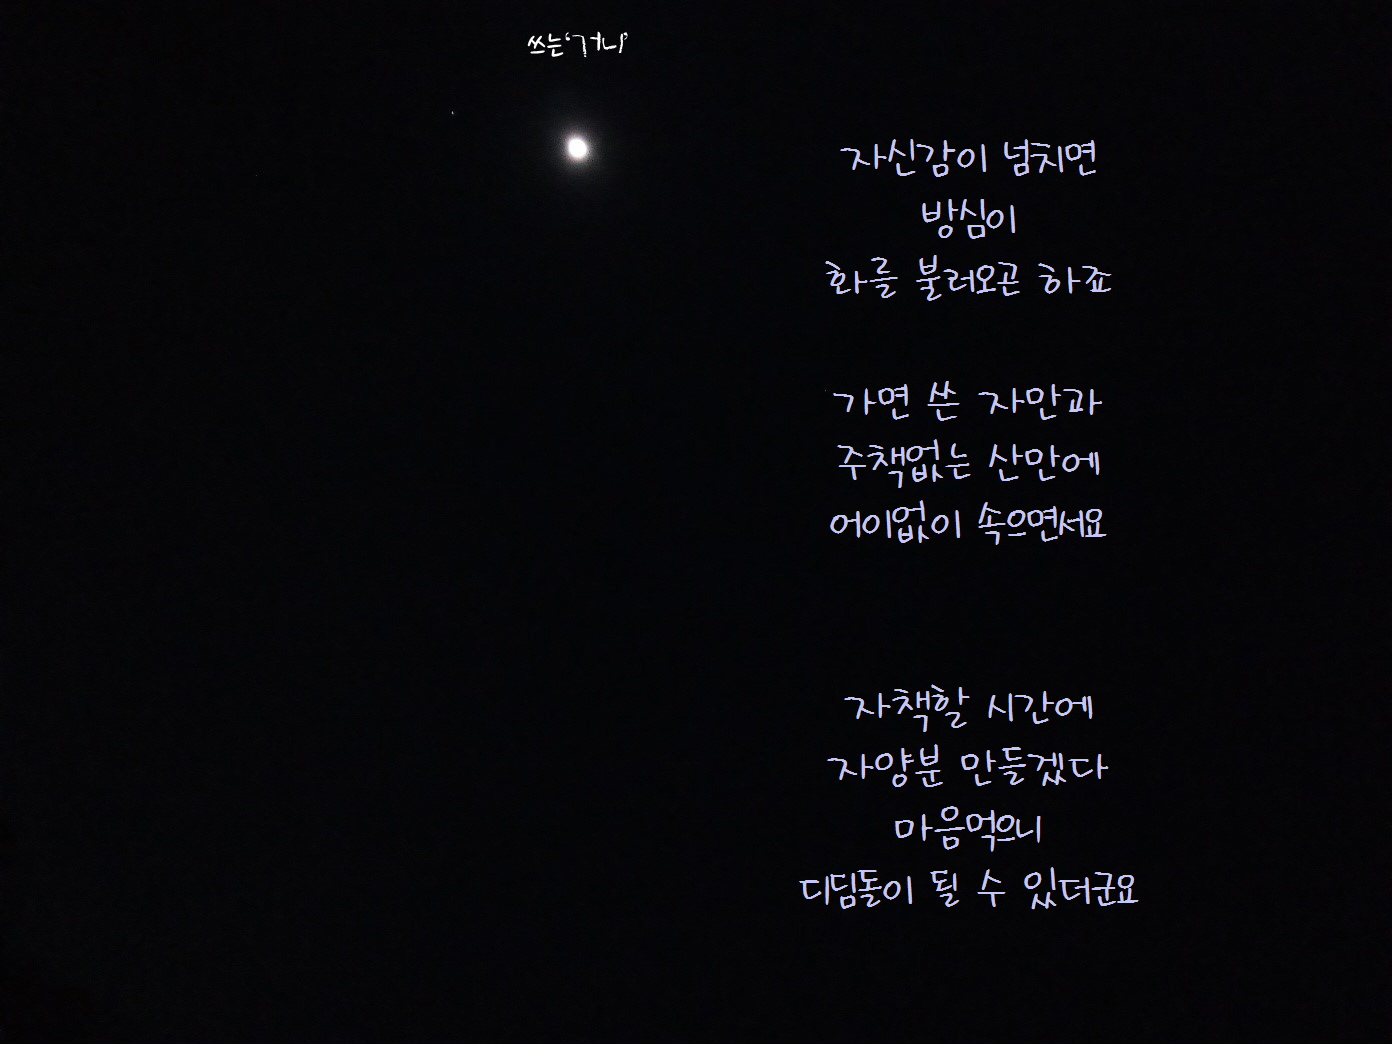 쓰는'거니'
자신감이 넘치면
방심이
화를 불러오곤 하죠
가면 쓴 자만과
주책없는 산만에
어이없이 속으면서요
자책할 시간에
자양분 만들겠다
마음먹으니
디딤돌이 될 수 있더군요